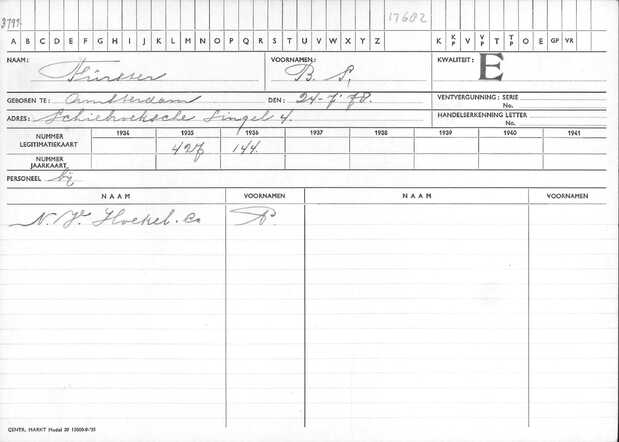 3797
17602
A B C D E F G H I J K L M N O P Q R S T U V W X Y Z K K/P V V/P T T/P O E GP VR
NAAM: Fürster VOORNAMEN: B. S, KWALITEIT: E
GEBOREN TE: Amsterdam DEN: 24-7-'78. VENTVERGUNNING: SERIE No.
ADRES: Schiebroeksche Singel 4. HANDELSERKENNING LETTER No.
NUMMER LEGITIMATIEKAART 1934 1935 1936 1937 1938 1939 1940 1941
427 144
NUMMER JAARKAART
PERSONEEL bij
NAAM VOORNAMEN NAAM VOORNAMEN
N.V. Hoekel. Co P.
CENTR. MARKT Model 39 15000-9-'35